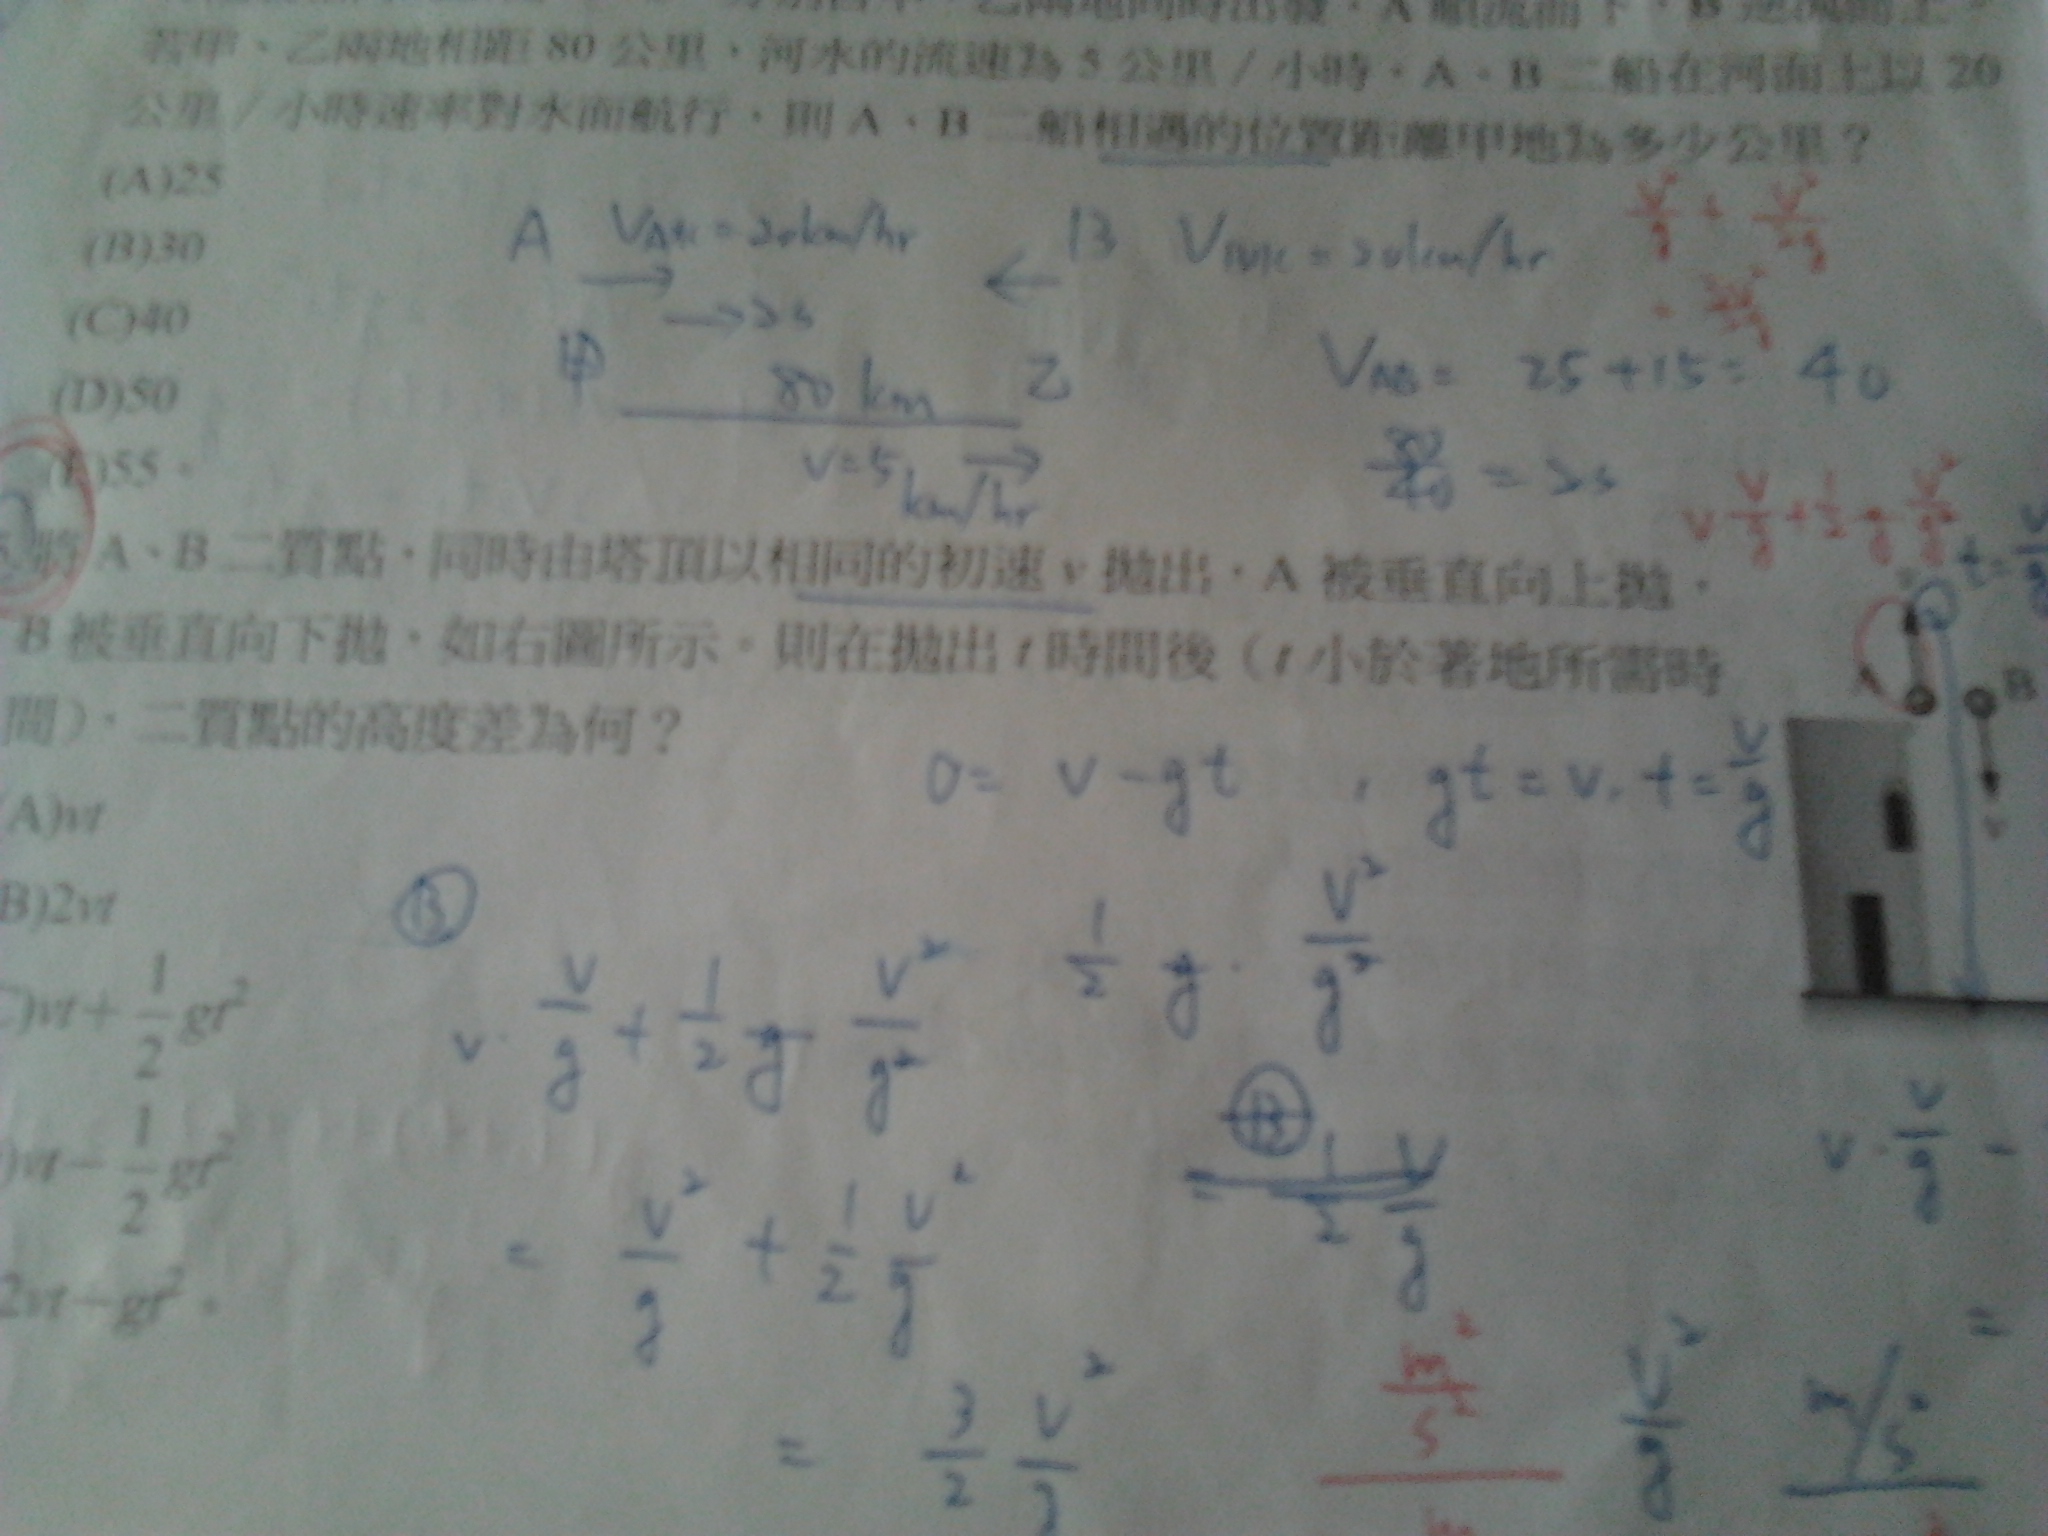 若甲、乙兩地相距 80 公里,河水的流速為 5 公里/小時。A、B 二船在河面上以 20
公里/小時速率對水面航行,則 A、B 二船相遇的位置距離甲地為多少公里?
(A)25
(B)30
(C)40
(D)50
(E)55。
A
= 20km/hr
B
= 20km/hr
→ 2s
甲 80 km 乙
v=5 km/hr
V_AB = 25+15= 40
80/40 = 2s
將 A、B 二質點,同時由塔頂以相同的初速 v 拋出,A 被垂直向上拋,
B 被垂直向下拋,如右圖所示。則在拋出 t 時間後(t 小於著地所需時
間),二質點的高度差為何?
(A)vt
(B)2vt
(C)vt+1/2 gt²
)vt−1/2 gt²
2vt−gt²。
B
0= v −gt , gt = v. t = v/g
v v/g + 1/2 g v²/g²
B
v· v/g + 1/2 g v²/g²
1/2 g · v²/g²
= v²/g + 1/2 v²/g
= 3/2 v²/g
v · v/g −
v²/g